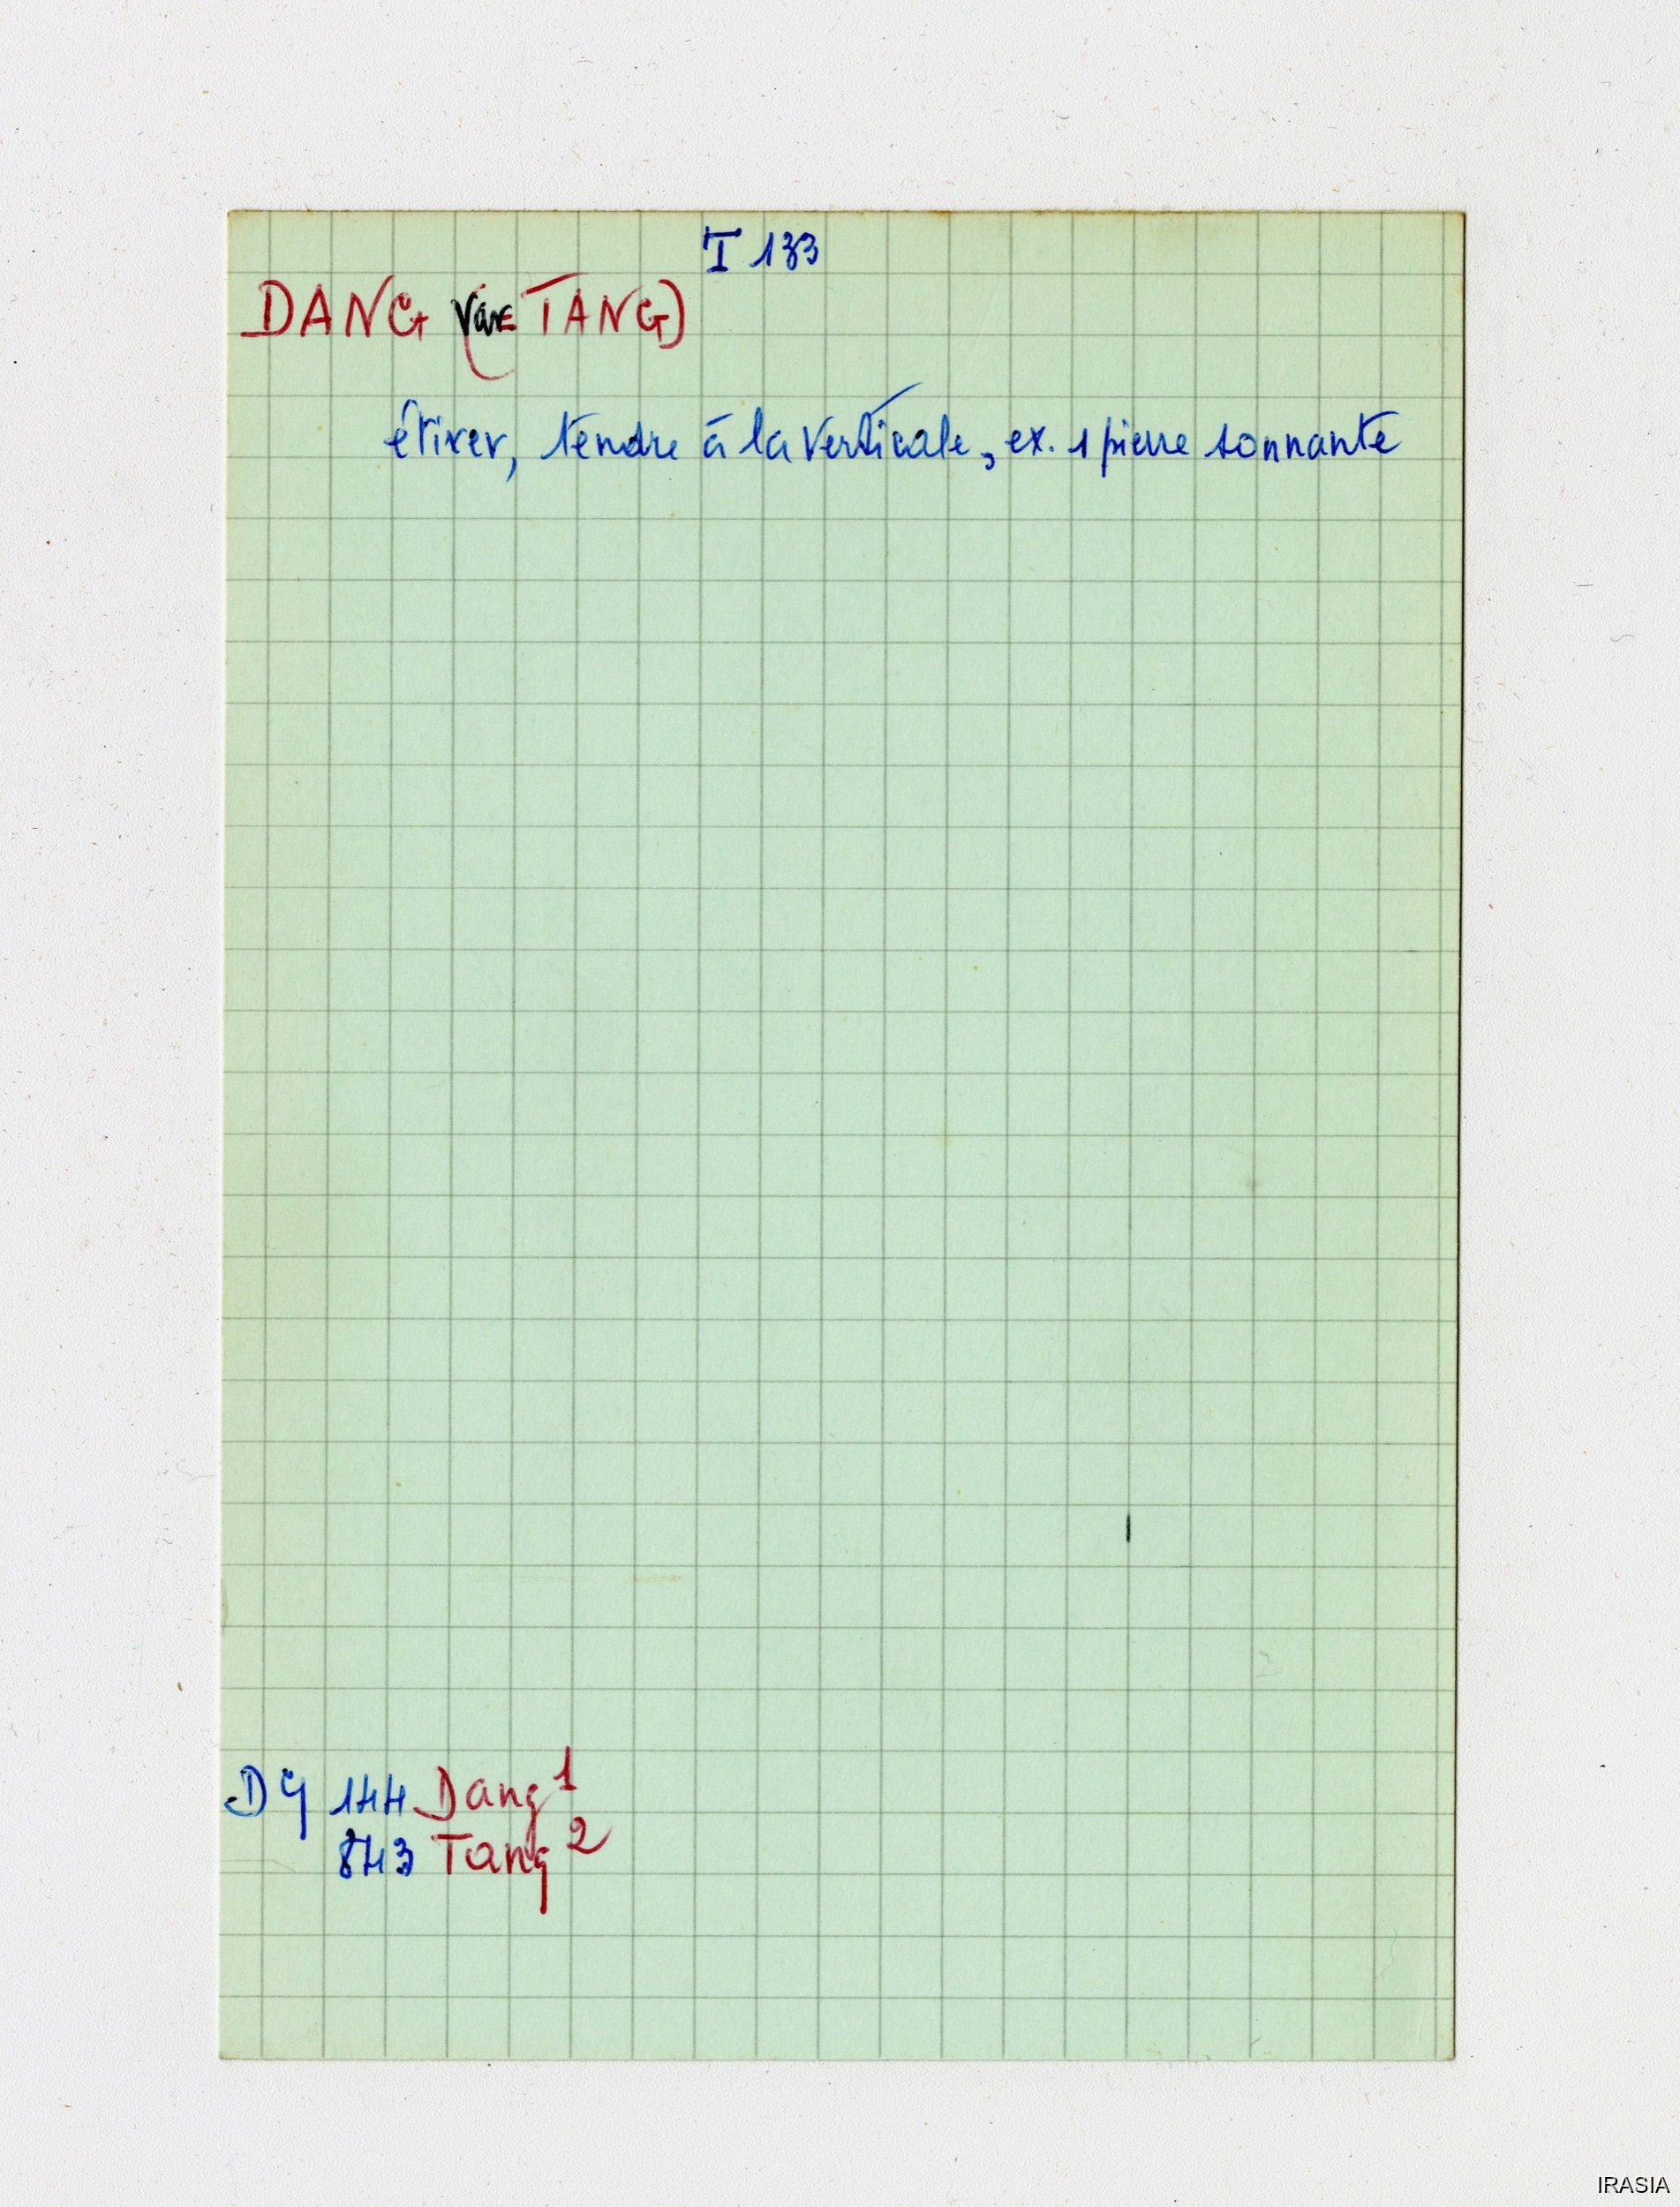 I 133
DANG (var TANG)
étirer, tendre à la verticale, ex. 1 pierre sonnante
DY 144 Dang 1
843 Tang 2
IRASIA